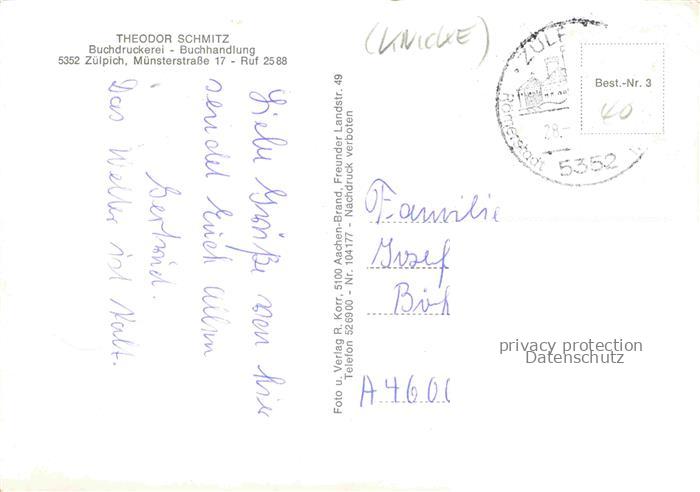 THEODOR SCHMITZ
Buchdruckerei - Buchhandlung
5352 Zülpich, Münsterstraße 17 - Ruf 2588
(KNICKE)
ZÜLP
Römerstadt
28.-
5352
Best.-Nr. 3
40
Liebe Grüße von hier
sendet Euch allen
Gertrud.
Das Wetter ist kalt.
Foto u. Verlag R. Korr, 5100 Aachen-Brand, Freunder Landstr. 49
Telefon 526900 - Nr. 104177 - Nachdruck verboten
Familie
Josef
A 460
privacy protection
Datenschutz